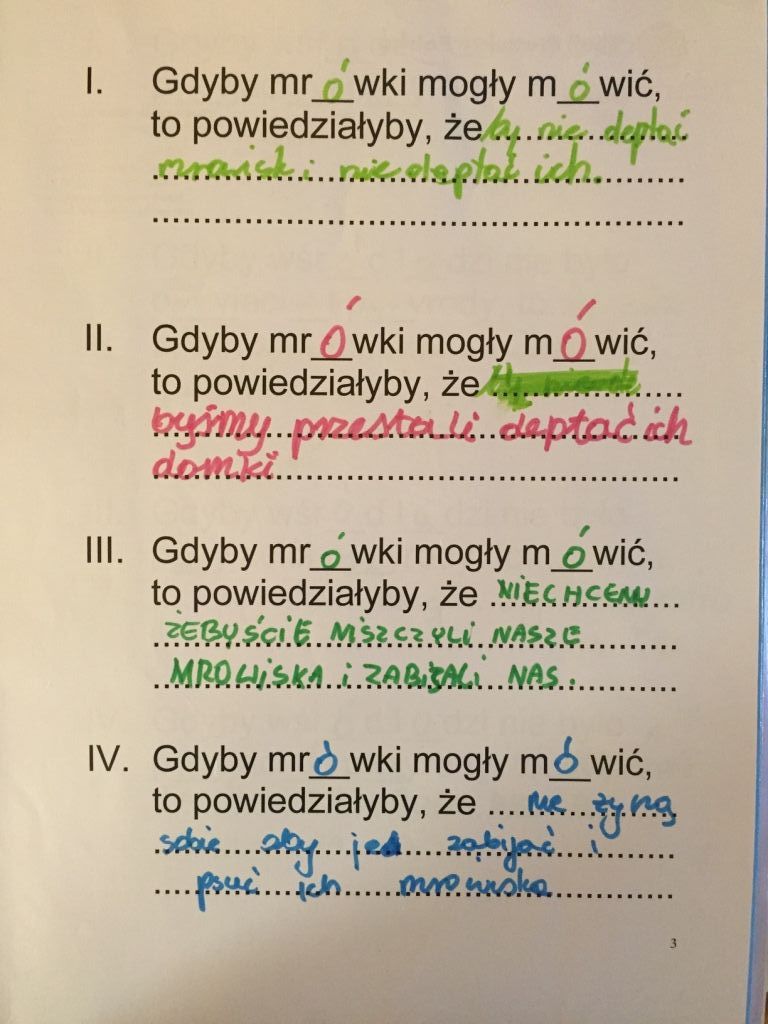 I. Gdyby mrówki mogły mówić,
to powiedziałyby, że by nie deptać
mrowisk i nie deptać ich.
II. Gdyby mrÓwki mogły mÓwić,
to powiedziałyby, że
byśmy przestali deptać ich
domki
III. Gdyby mrówki mogły mówić,
to powiedziałyby, że NIECHCEMY
ŻEBYŚCIE NISZCZYLI NASZE
MROWISKA i ZABIJALI NAS.
IV. Gdyby mrówki mogły mówić,
to powiedziałyby, że nie żyną
sobie aby je zabijać i
psuć ich mrowiska
3